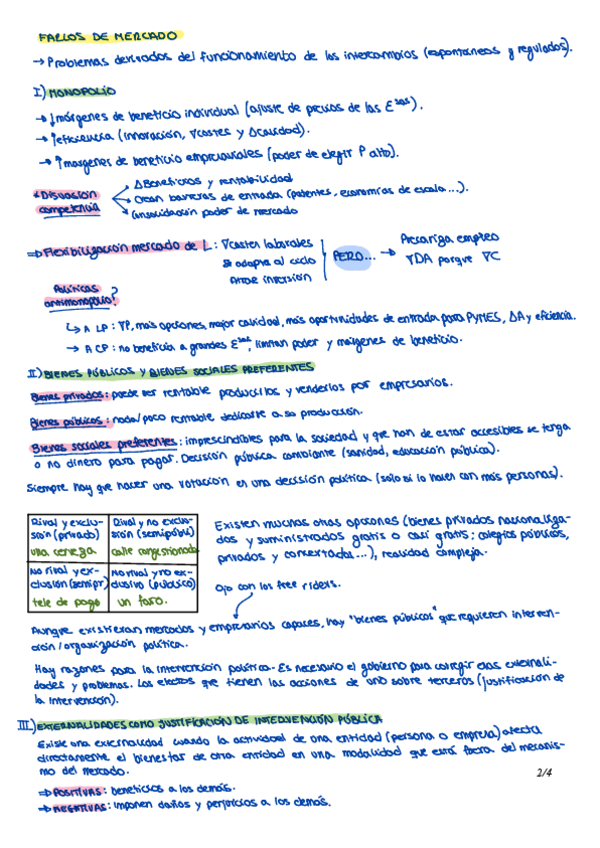 FALLOS DE MERCADO
→ Problemas derivados del funcionamiento de los intercambios (espontáneos y regulados).
I) MONOPOLIO
→ ↓márgenes de beneficio individual (ajuste de precios de las Esas).
→ ↑eficiencia (innovación, ∇costes y Δcalidad).
→ ↑margenes de beneficio empresariales (poder de elegir P alto).
* Disuasión competencia
Δ Beneficios y rentabilidad
Crean barreras de entrada (patentes, economías de escala...).
Consolidación poder de mercado
⇒ Flexibilización mercado de L: ∇costes laborales
Se adapta al ciclo
Atrae inversión
PERO... →
Precariza empleo
∇DA porque ∇C
Políticas antimonopolio?
↳ A LP: ∇P, más opciones, mejor calidad, más oportunidades de entrada para PYMES, ΔA y eficiencia.
→ A CP: no beneficia a grandes Esas, limitan poder y márgenes de beneficio.
II) BIENES PÚBLICOS Y BIENES SOCIALES PREFERENTES
Bienes privados: puede ser rentable producirlos y venderlos por empresarios.
Bienes públicos: nada/poco rentable dedicarte a su producción.
Bienes sociales preferentes: imprescindibles para la sociedad y que han de estar accesibles se tenga
o no dinero para pagar. Decisión pública cambiante (sanidad, educación pública).
Siempre hay que hacer una votación en una decisión política (solo si lo hacen con más personas).
Rival y exclu-
sión (privado)
una cerveza
Rival y no exclu-
sión (semipúbli)
calle congestionada
No rival y ex-
clusión (semipr)
tele de pago
No rival y no ex-
clusivo (público)
un faro.
Existen muchas otras opciones (bienes privados nacionaliza-
dos y suministrados gratis o casi gratis; colegios públicos,
privados y concertados...), realidad compleja.
Ojo con los free riders.
Aunque existieran mercados y empresarios capaces, hay "bienes públicos" que requieren interven-
ción/organización política.
Hay razones para la intervención política. Es necesario el gobierno para corregir esas externali-
dades y problemas. Los efectos que tienen las acciones de uno sobre terceros (justificación de
la intervención).
III) EXTERNALIDADES COMO JUSTIFICACIÓN DE INTERVENCIÓN PÚBLICA
Existe una externalidad cuando la actividad de una entidad (persona o empresa) afecta
directamente el bienestar de otra entidad en una modalidad que está fuera del mecanis-
mo del mercado.
⇒ POSITIVAS: beneficios a los demás.
⇒ NEGATIVAS: imponen daños y perjuicios a los demás.
2/4